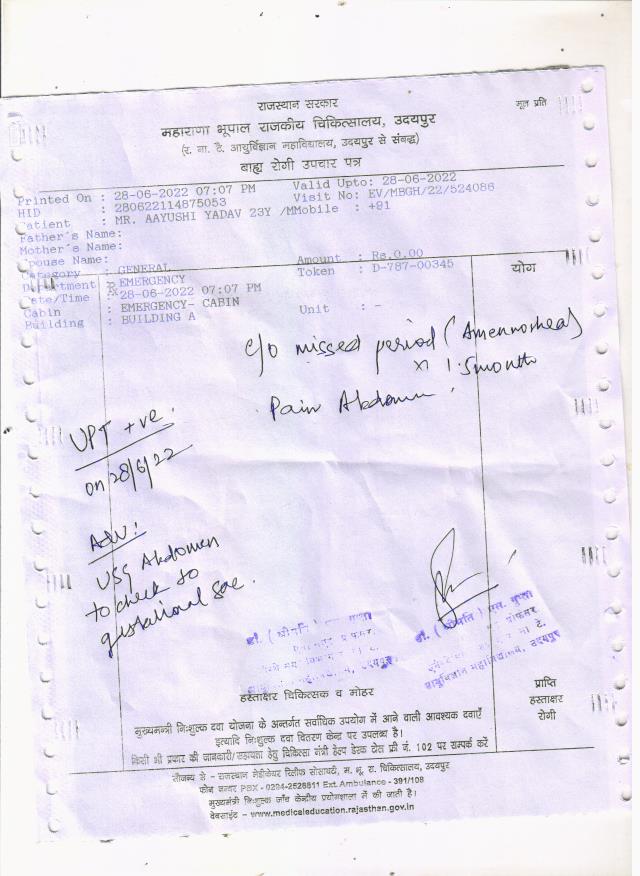 राजस्थान सरकार
मूल प्रति
महाराणा भूपाल राजकीय चिकित्सालय, उदयपुर
(र. ना. टै. आयुर्विज्ञान महाविद्यालय, उदयपुर से संबद्ध)
बाह्य रोगी उपचार पत्र
Printed On : 28-06-2022 07:07 PM Valid Upto: 28-06-2022
HID : 280622114875053 Visit No: EV/MBGH/22/524086
Patient : MR. AAYUSHI YADAV 23Y /MMobile : +91
Father's Name:
Mother's Name:
Spouse Name:
Category : GENERAL Amount : Rs.0.00
Department : EMERGENCY Token : D-787-00345
Date/Time : 28-06-2022 07:07 PM
Cabin : EMERGENCY- CABIN Unit : -
Building : BUILDING A
योग
c/o missed period (Amennorhea)
x 1.5 month
Pain Abdomen
UPT +ve.
on 28/6/22
Adv:
USG Abdomen
to check so
gestational sac.
डॉ. ( श्रीमति ) गुप्ता
उदयपुर
डॉ. ( श्रीमति ) एस. गुप्ता
आयुर्विज्ञान महाविद्यालय, उदयपुर
हस्ताक्षर चिकित्सक व मोहर
प्राप्ति
हस्ताक्षर
रोगी
मुख्यमन्त्री निःशुल्क दवा योजना के अन्तर्गत सर्वाधिक उपयोग में आने वाली आवश्यक दवाएँ
इत्यादि निःशुल्क दवा वितरण केन्द्र पर उपलब्ध है।
किसी भी प्रकार की जानकारी/सहायता हेतु चिकित्सा मंत्री हेल्प डेस्क टोल फ्री नं. 102 पर सम्पर्क करें
सौजन्य से - राजस्थान मेडीकेयर रिलीफ सोसायटी, म. भू. रा. चिकित्सालय, उदयपुर
फोन नम्बर PBX - 0294-2528811 Ext. Ambulance - 391/108
मुख्यमंत्री निःशुल्क जाँच केन्द्रीय प्रयोगशाला में की जाती है।
वेबसाईट - www.medicaleducation.rajasthan.gov.in